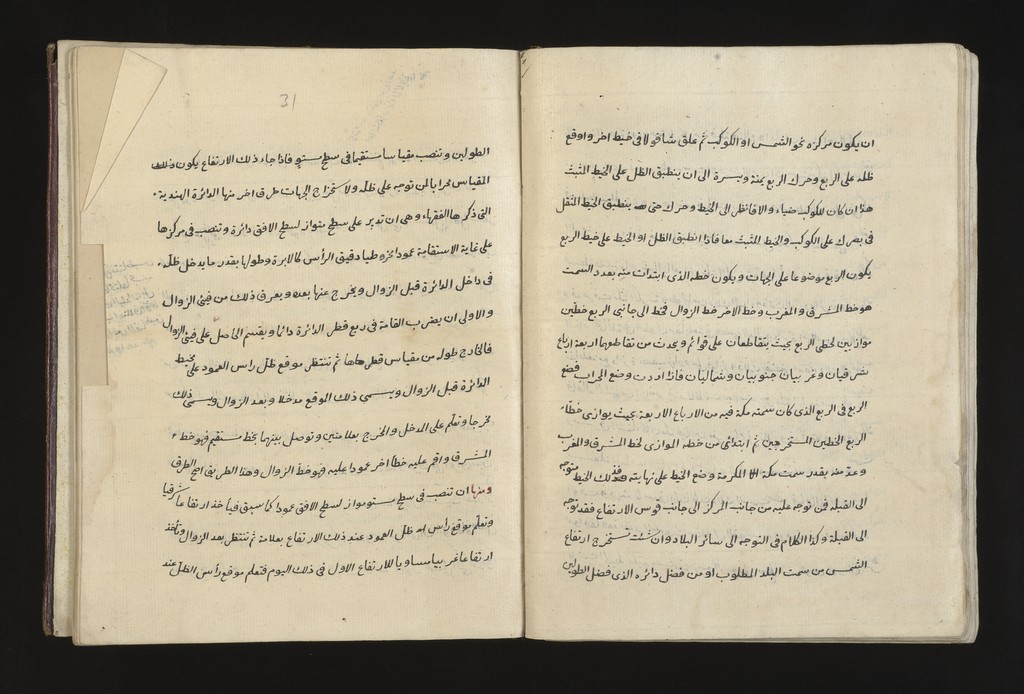 ان يكون مركزه نحو الشمس او الكوكب ثم علق شاقولا فى خيط اخر واوقع
ظله على الربع وحرك الربع يمنة ويسرة الى ان ينطبق الظل على الخيط المثبت
هذا ان كان للكوكب ضياء والا فانظر الى الخيط وحرك حتى ينطبق الخيط المثقل
فى بصرك على الكوكب والخيط المثبت معا فاذا انطبق الظل او الخيط على خيط الربع
يكون الربع موضوعا على الجهات ويكون خطه الذى ابتدات منه بعدد السمت
هو خط المشرق والمغرب وخط الاخر خط الزوال فخط الى جانبى الربع خطين
موازيين لخطى الربع بحيث يتقاطعان على قوائم ويحدث من تقاطعهما اربعة ارباع
شرقيان وغربيان جنوبيان وشماليان فاذا اردت وضع المحراب فضع
الربع فى الربع الذى كان سمته مكة فيه من الارباع الاربعة بحيث يوازى خطاء
الربع الخطين المستخرجين ثم ابتدائ من خطه الموازى لخط المشرق والمغرب
وعد منه بقدر سمت مكة المكرمة وضع الخيط على نهايته فذلك الخيط متوجه
الى القبلة فمن توجه عليه من جانب المركز الى جانب قوس الارتفاع فقد توجه
الى القبلة وكذا الكلام فى التوجه الى سائر البلاد وان شئت تستخرج ارتفاع
الشمس من سمت البلد المطلوب او من فضل دائره الذى فضل الطولين
31
الطولين وتنصب مقياسا مستقيما فى سطح مستو فاذا جاء ذلك الارتفاع يكون وظلك
المقياس محرابا لمن توجه على ظله ولاستخراج الجهات طرق اخر منها الدائرة الهندية
التى ذكرها الفقهاء وهى ان تدير على سطح متواز لسطح الافق دائرة وتنصب فى مركزها
على غاية الاستقامة عمودا مخروطيا دقيق الرأس كالابرة وطولها بقدر ما يدخل ظله
فى داخل الدائرة قبل الزوال ويخرج عنها بعده ويعرف ذلك من فيئ الزوال
والاولى ان يضرب القامة فى ربع قطر الدائرة دائما ويقسم الحاصل على فيئ الزوال
فالخارج طوله من مقياس قطرها ثم تنتظر موقع ظل راس العمود على محيط
الدائرة قبل الزوال ويسمى ذلك الموقع مدخلا وبعد الزوال ويسمى ذلك
مخرجا وتعلم على المدخل والمخرج بعلامتين وتوصل بينهما بخط مستقيم فهو خط
المشرق واقم عليه خطا اخر عمودا عليه فهو خط الزوال وهذا الطريق اصح الطرق
ومنها ان تنصب فى سطح مستو مواز لسطح الافق عمودا كما سبق فيأخذ ارتفاعا شرقيا
وتعلم بموقع رأس ظل العمود عند ذلك الارتفاع بعلامة ثم تنتظر بعد الزوال وتأخذ
ارتفاعا غربيا مساويا للارتفاع الاول فى ذلك اليوم فتعلم موقع رأس الظل عند